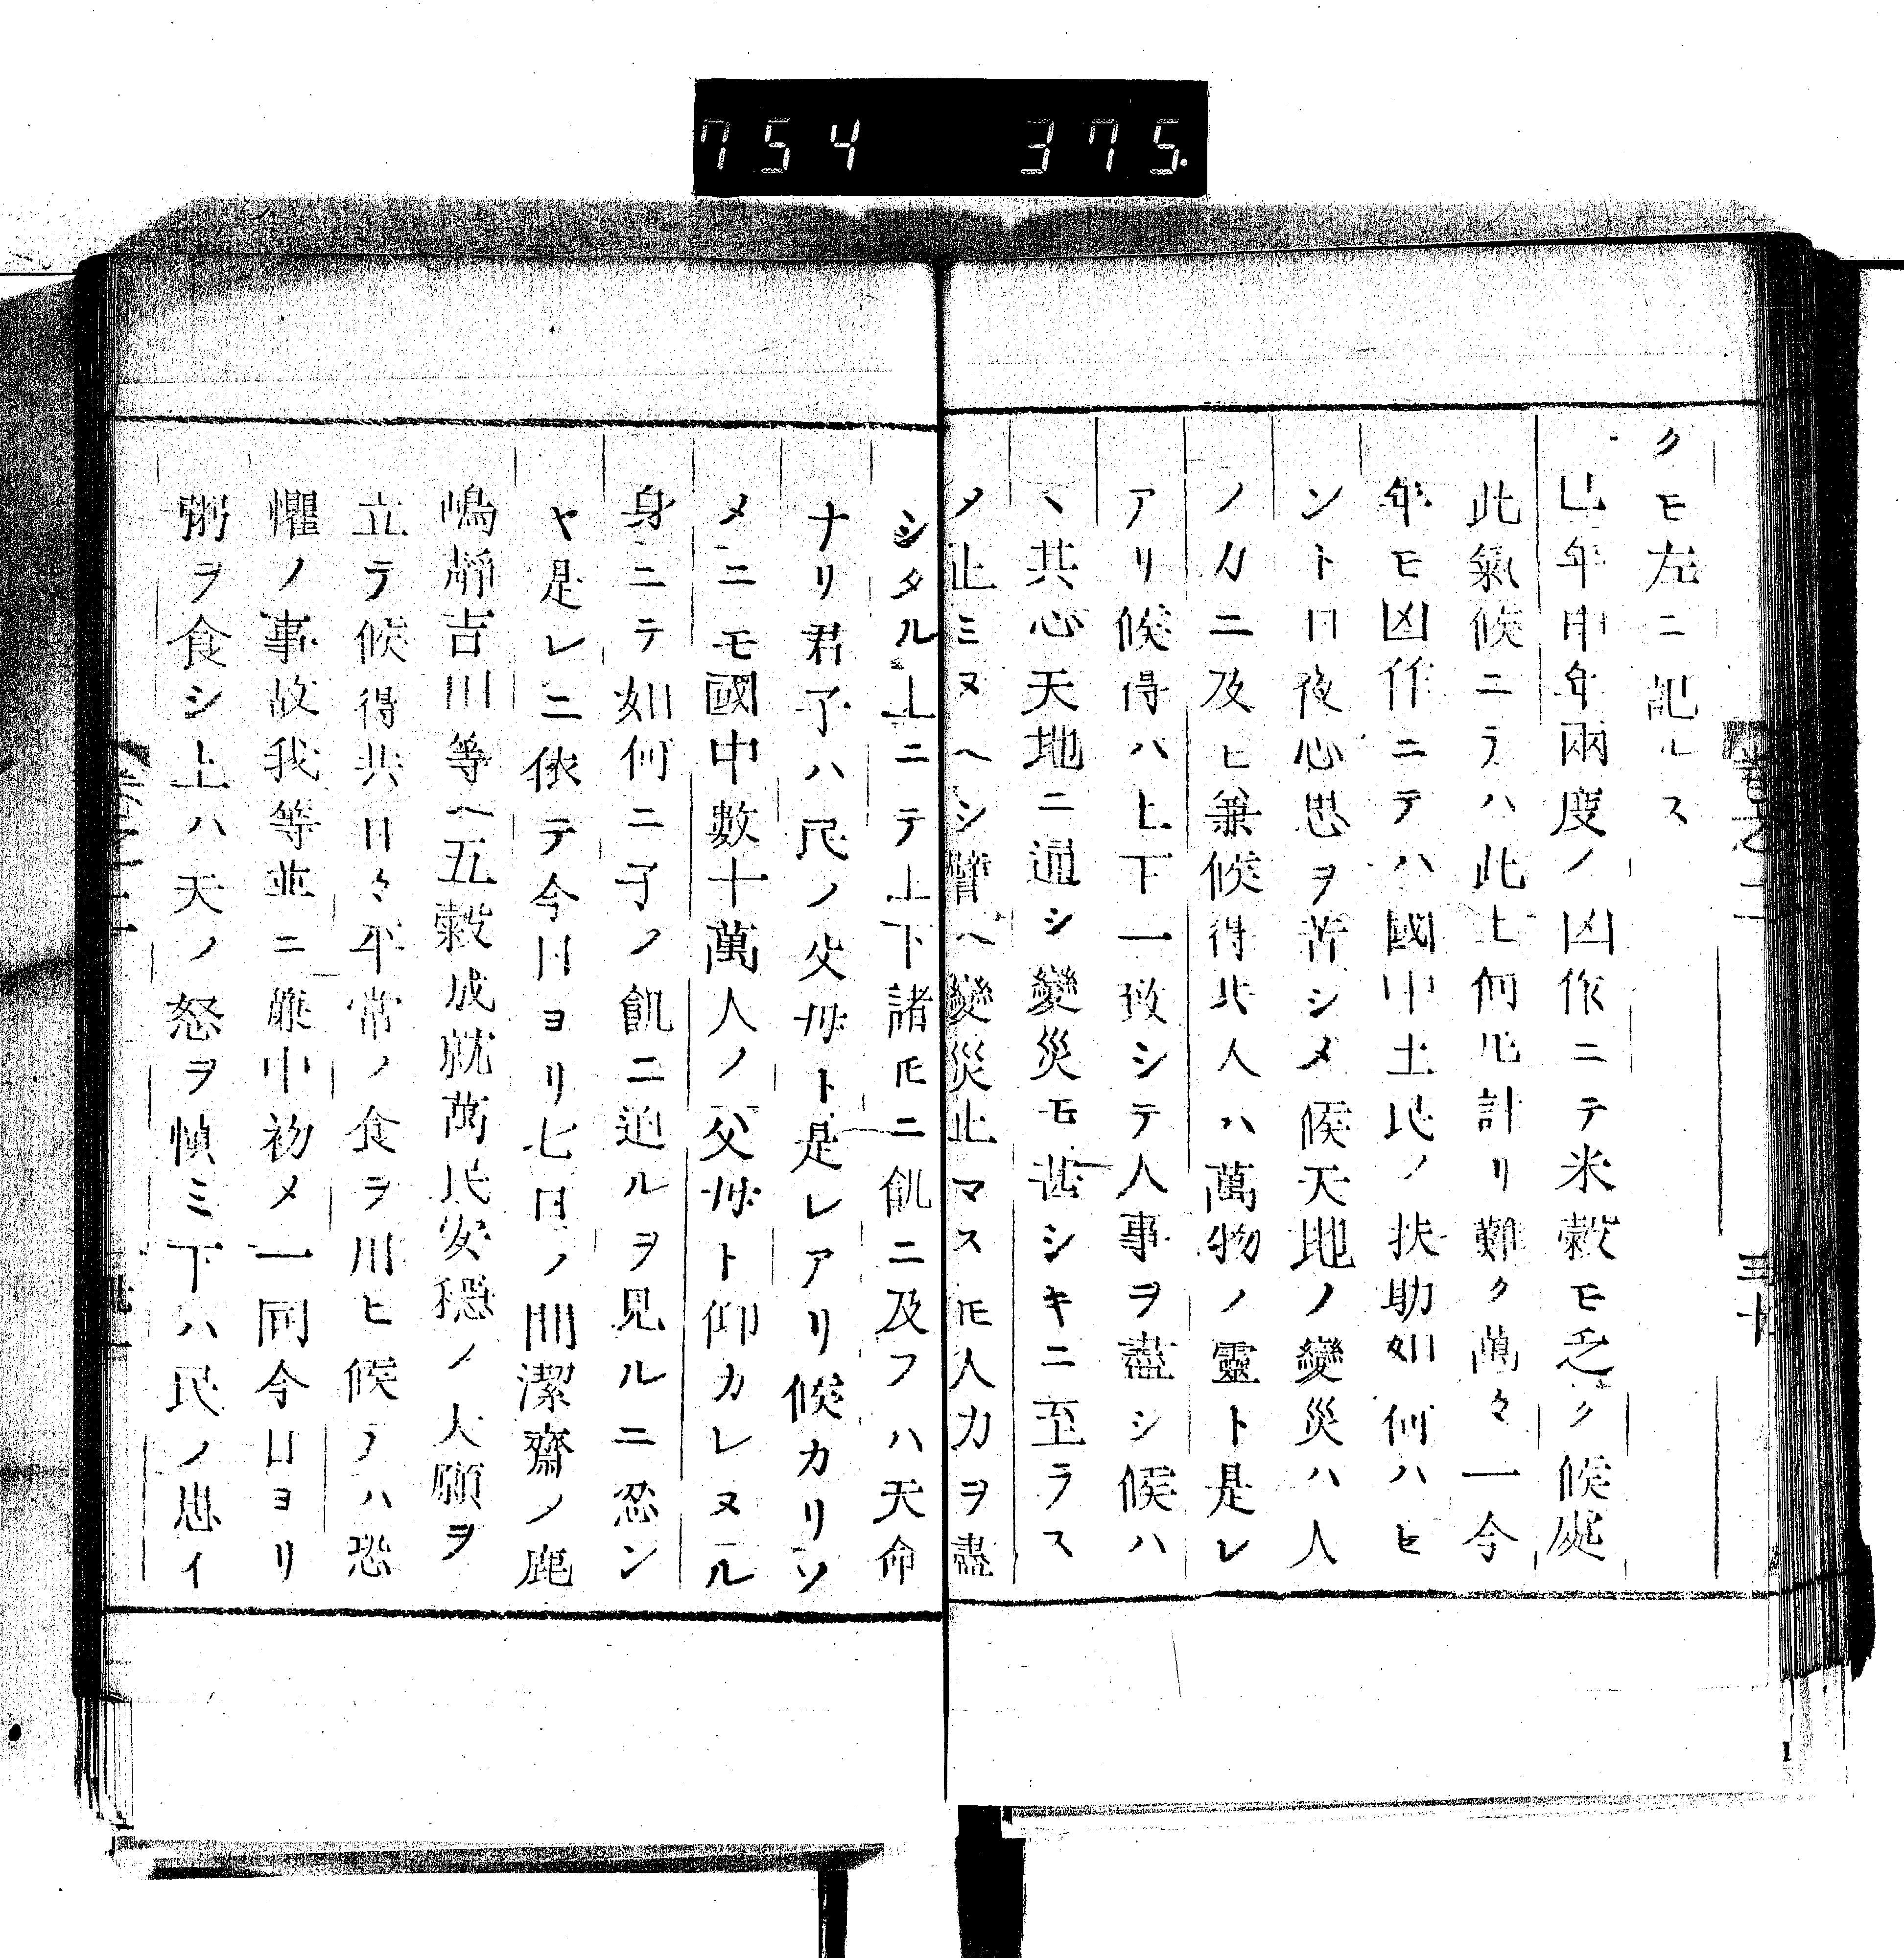 754 375.
クモ左ニ記ルス
巳年申年兩度ノ凶作ニテ米穀モ乏ク候處
此氣候ニテハ此上何𪜈計リ難ク萬々一今
年モ凶作ニテハ國中土民ノ扶助如何ハセ
ント日夜心思ヲ苦シメ候天地ノ變災ハ人
ノカニ及ヒ兼候得共人ハ萬物ノ靈ト是レ
アリ候得ハ上下一致シテ人事ヲ盡シ候ハ
ヽ共心天地ニ通シ變災モ甚シキニ至ラス
メ止ミヌヘシ譬ヘ變災止マス𪜈人力ヲ盡
シタル上ニテ上下諸𪜈ニ飢ニ及フハ天命
ナリ君子ハ民ノ父母ト是レアリ候カリソ
メニモ國中數十萬人ノ父母ト仰カレヌル
身ニテ如何ニ子ノ飢ニ迫ルヲ見ルニ忍ン
ヤ是レニ依テ今日ヨリ七日ノ間潔齋ノ鹿
嶋靜吉川等ヘ五穀成就萬民安穩ノ大願ヲ
立テ候得共日々平常ノ食ヲ用ヒ候テハ恐
懼ノ事故我等並ニ簾中初メ一同今日ヨリ
粥ヲ食シ上ハ天ノ怒ヲ愼ミ下ハ民ノ患イ
卷之二
三十